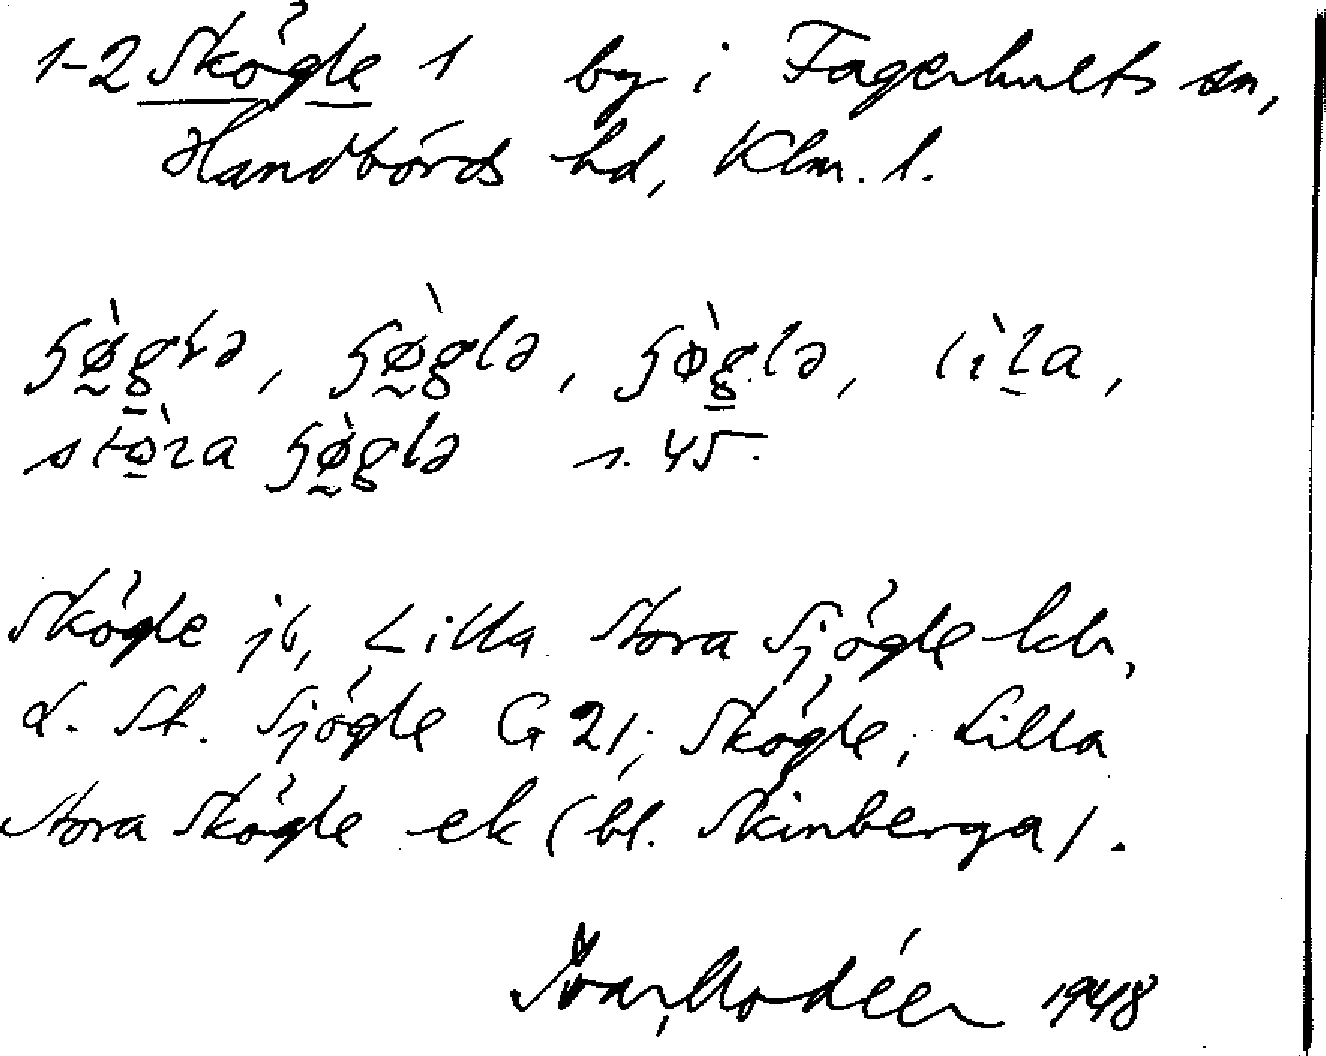 1-2 Skögle 1 by i Fagerhults sn,
Handbörds hd, Klm. l.
ɧø̀glə, ɧø̀glə, ɧø̀glə, lìla,
stòra ɧø̀glə s. 45.
Skögle jb, Lilla Stora Sjögle kb,
d. St. Sjögle G 21; Skögle, Lilla
Stora Skögle ek (bl. Skinberga).
Ivar Modéer 1948